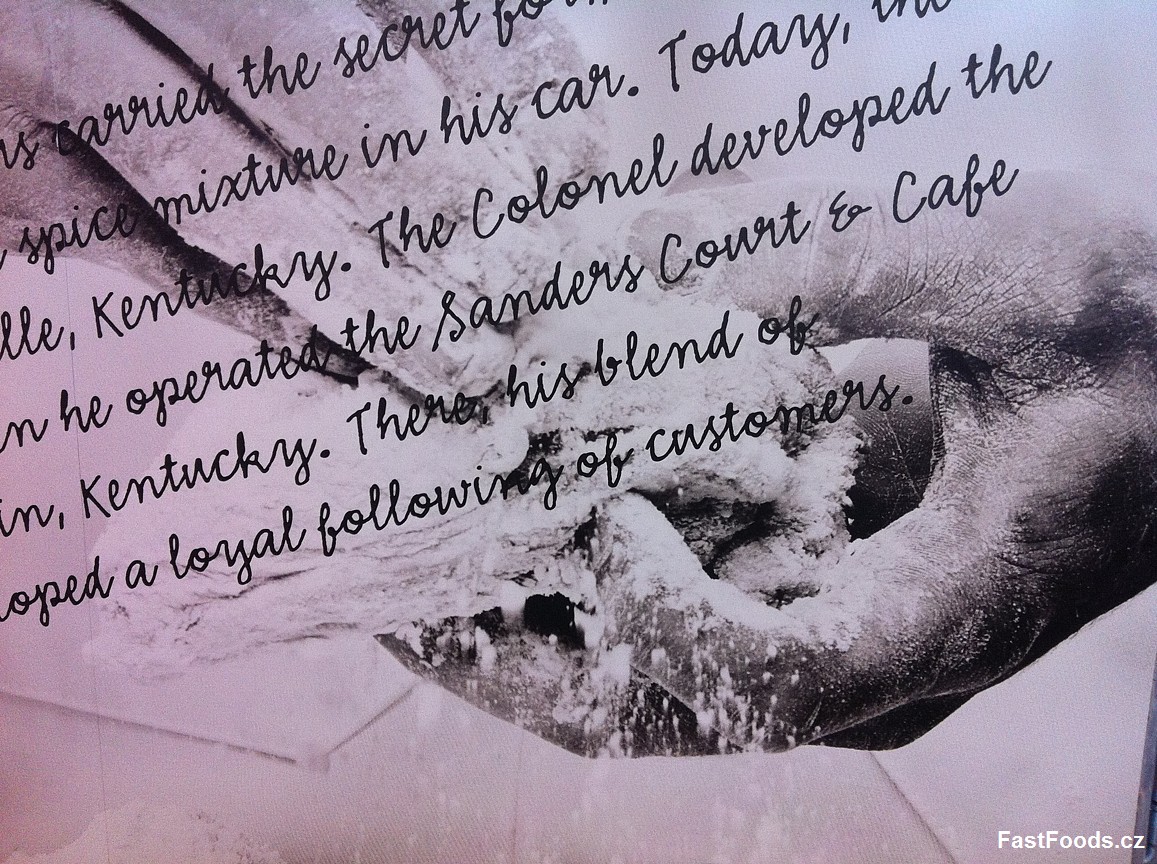 carried the secret
spice mixture in his car. Today, the
lle, Kentucky. The Colonel developed the
n he operated the Sanders Court & Cafe
in, Kentucky. There, his blend of
oped a loyal following of customers.
FastFoods.cz